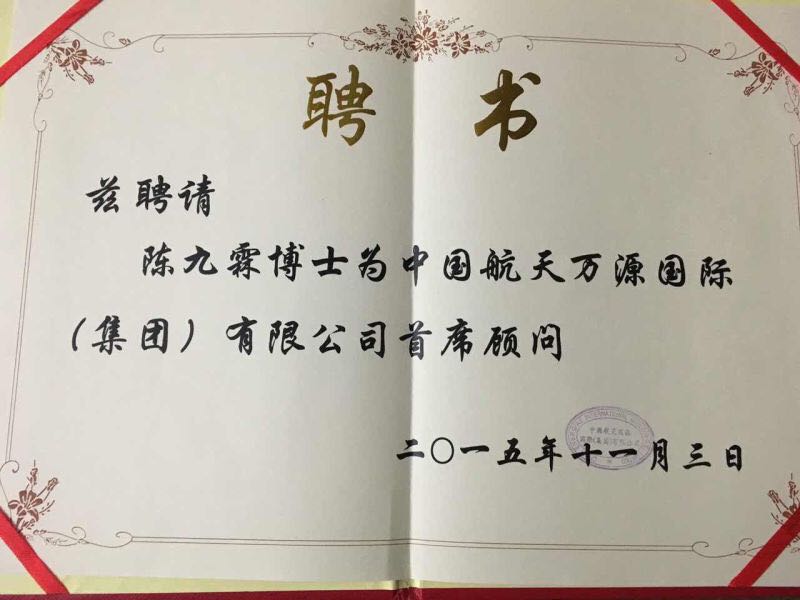 聘 书
兹聘请
陈九霖博士为中国航天万源国际
（集团）有限公司首席顾问
二〇一五年十一月三日